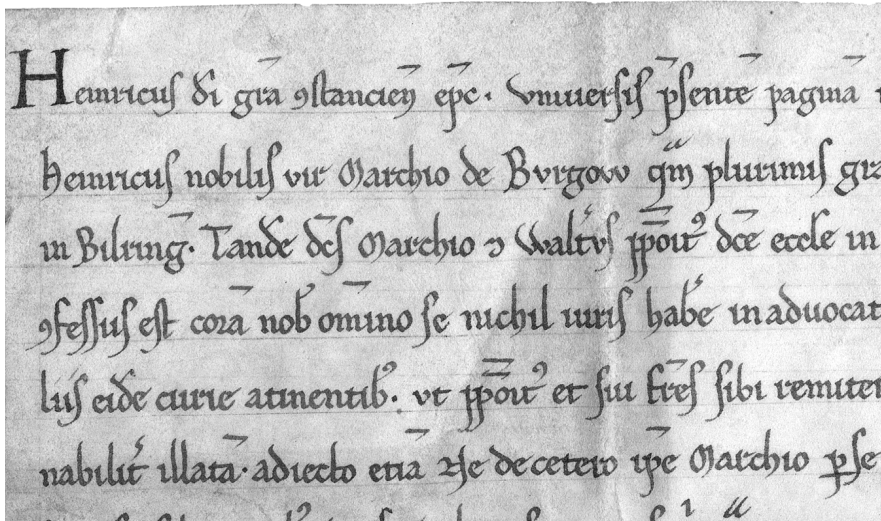 Heinricus di gra ꝯstancien̄ epc. Vniuersis p̄sentē paginā
heinricus nobilis uir Marchio de Bvrgow qm plurimis gra
in Bilring. Tande dcs Marchio ⁊ Waltvs p̄poit⁹ dce eccle in
ꝯfessus est corā nob omīno se nichil iuris habe in aduocat
lus eide curie atinentib. vt p̄poit⁹ et sui frēs sibi remitter
nabilit illatā. adiecto etiā Ne de cetero ipe Marchio ꝑ se